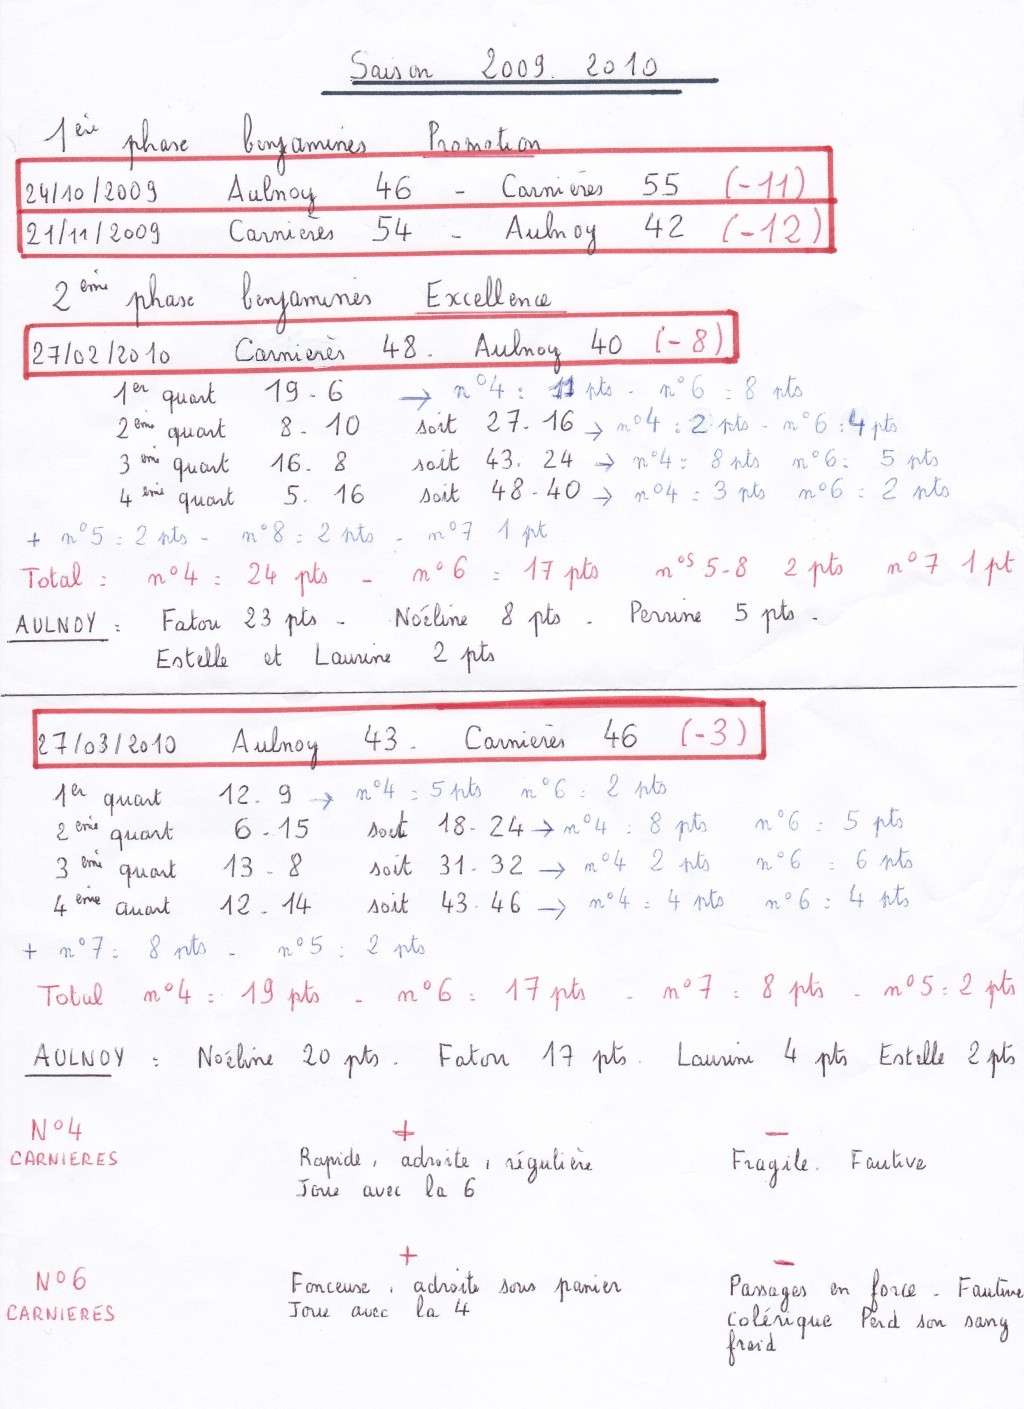 Saison 2009. 2010
1ère phase benjamines Promotion
24/10/2009 Aulnoy 46 - Carnières 55 (-11)
21/11/2009 Carnières 54 - Aulnoy 42 (-12)
2ème phase benjamines Excellence
27/02/2010 Carnières 48. Aulnoy 40 (-8)
1er quart 19-6 → n°4 : 11 pts - n°6 : 8 pts
2ème quart 8-10 soit 27-16 → n°4 : 2 pts - n°6 : 4 pts
3ème quart 16-8 soit 43-24 → n°4 : 8 pts n°6 : 5 pts
4ème quart 5-16 soit 48-40 → n°4 : 3 pts n°6 : 2 pts
+ n°5 : 2 pts - n°8 : 2 pts - n°7 1 pt
Total : n°4 : 24 pts - n°6 : 17 pts n°s 5-8 2 pts n°7 1 pt
AULNOY : Fatou 23 pts - Noéline 8 pts - Perrine 5 pts -
Estelle et Laurine 2 pts
27/03/2010 Aulnoy 43. Carnières 46 (-3)
1er quart 12-9 → n°4 : 5 pts n°6 : 2 pts
2ème quart 6-15 soit 18-24 → n°4 : 8 pts n°6 : 5 pts
3ème quart 13-8 soit 31-32 → n°4 2 pts n°6 : 6 pts
4ème quart 12-14 soit 43-46 → n°4 : 4 pts n°6 : 4 pts
+ n°7 : 8 pts - n°5 : 2 pts
Total n°4 : 19 pts - n°6 : 17 pts - n°7 : 8 pts - n°5 : 2 pts
AULNOY : Noéline 20 pts. Fatou 17 pts. Laurine 4 pts Estelle 2 pts
N°4 + -
CARNIERES Rapide, adroite, régulière Fragile. Fautive
Joue avec la 6
+
N°6 -
CARNIERES Fonceuse, adroite sous panier Passages en force - Fautive
Joue avec la 4 colérique Perd son sang
froid